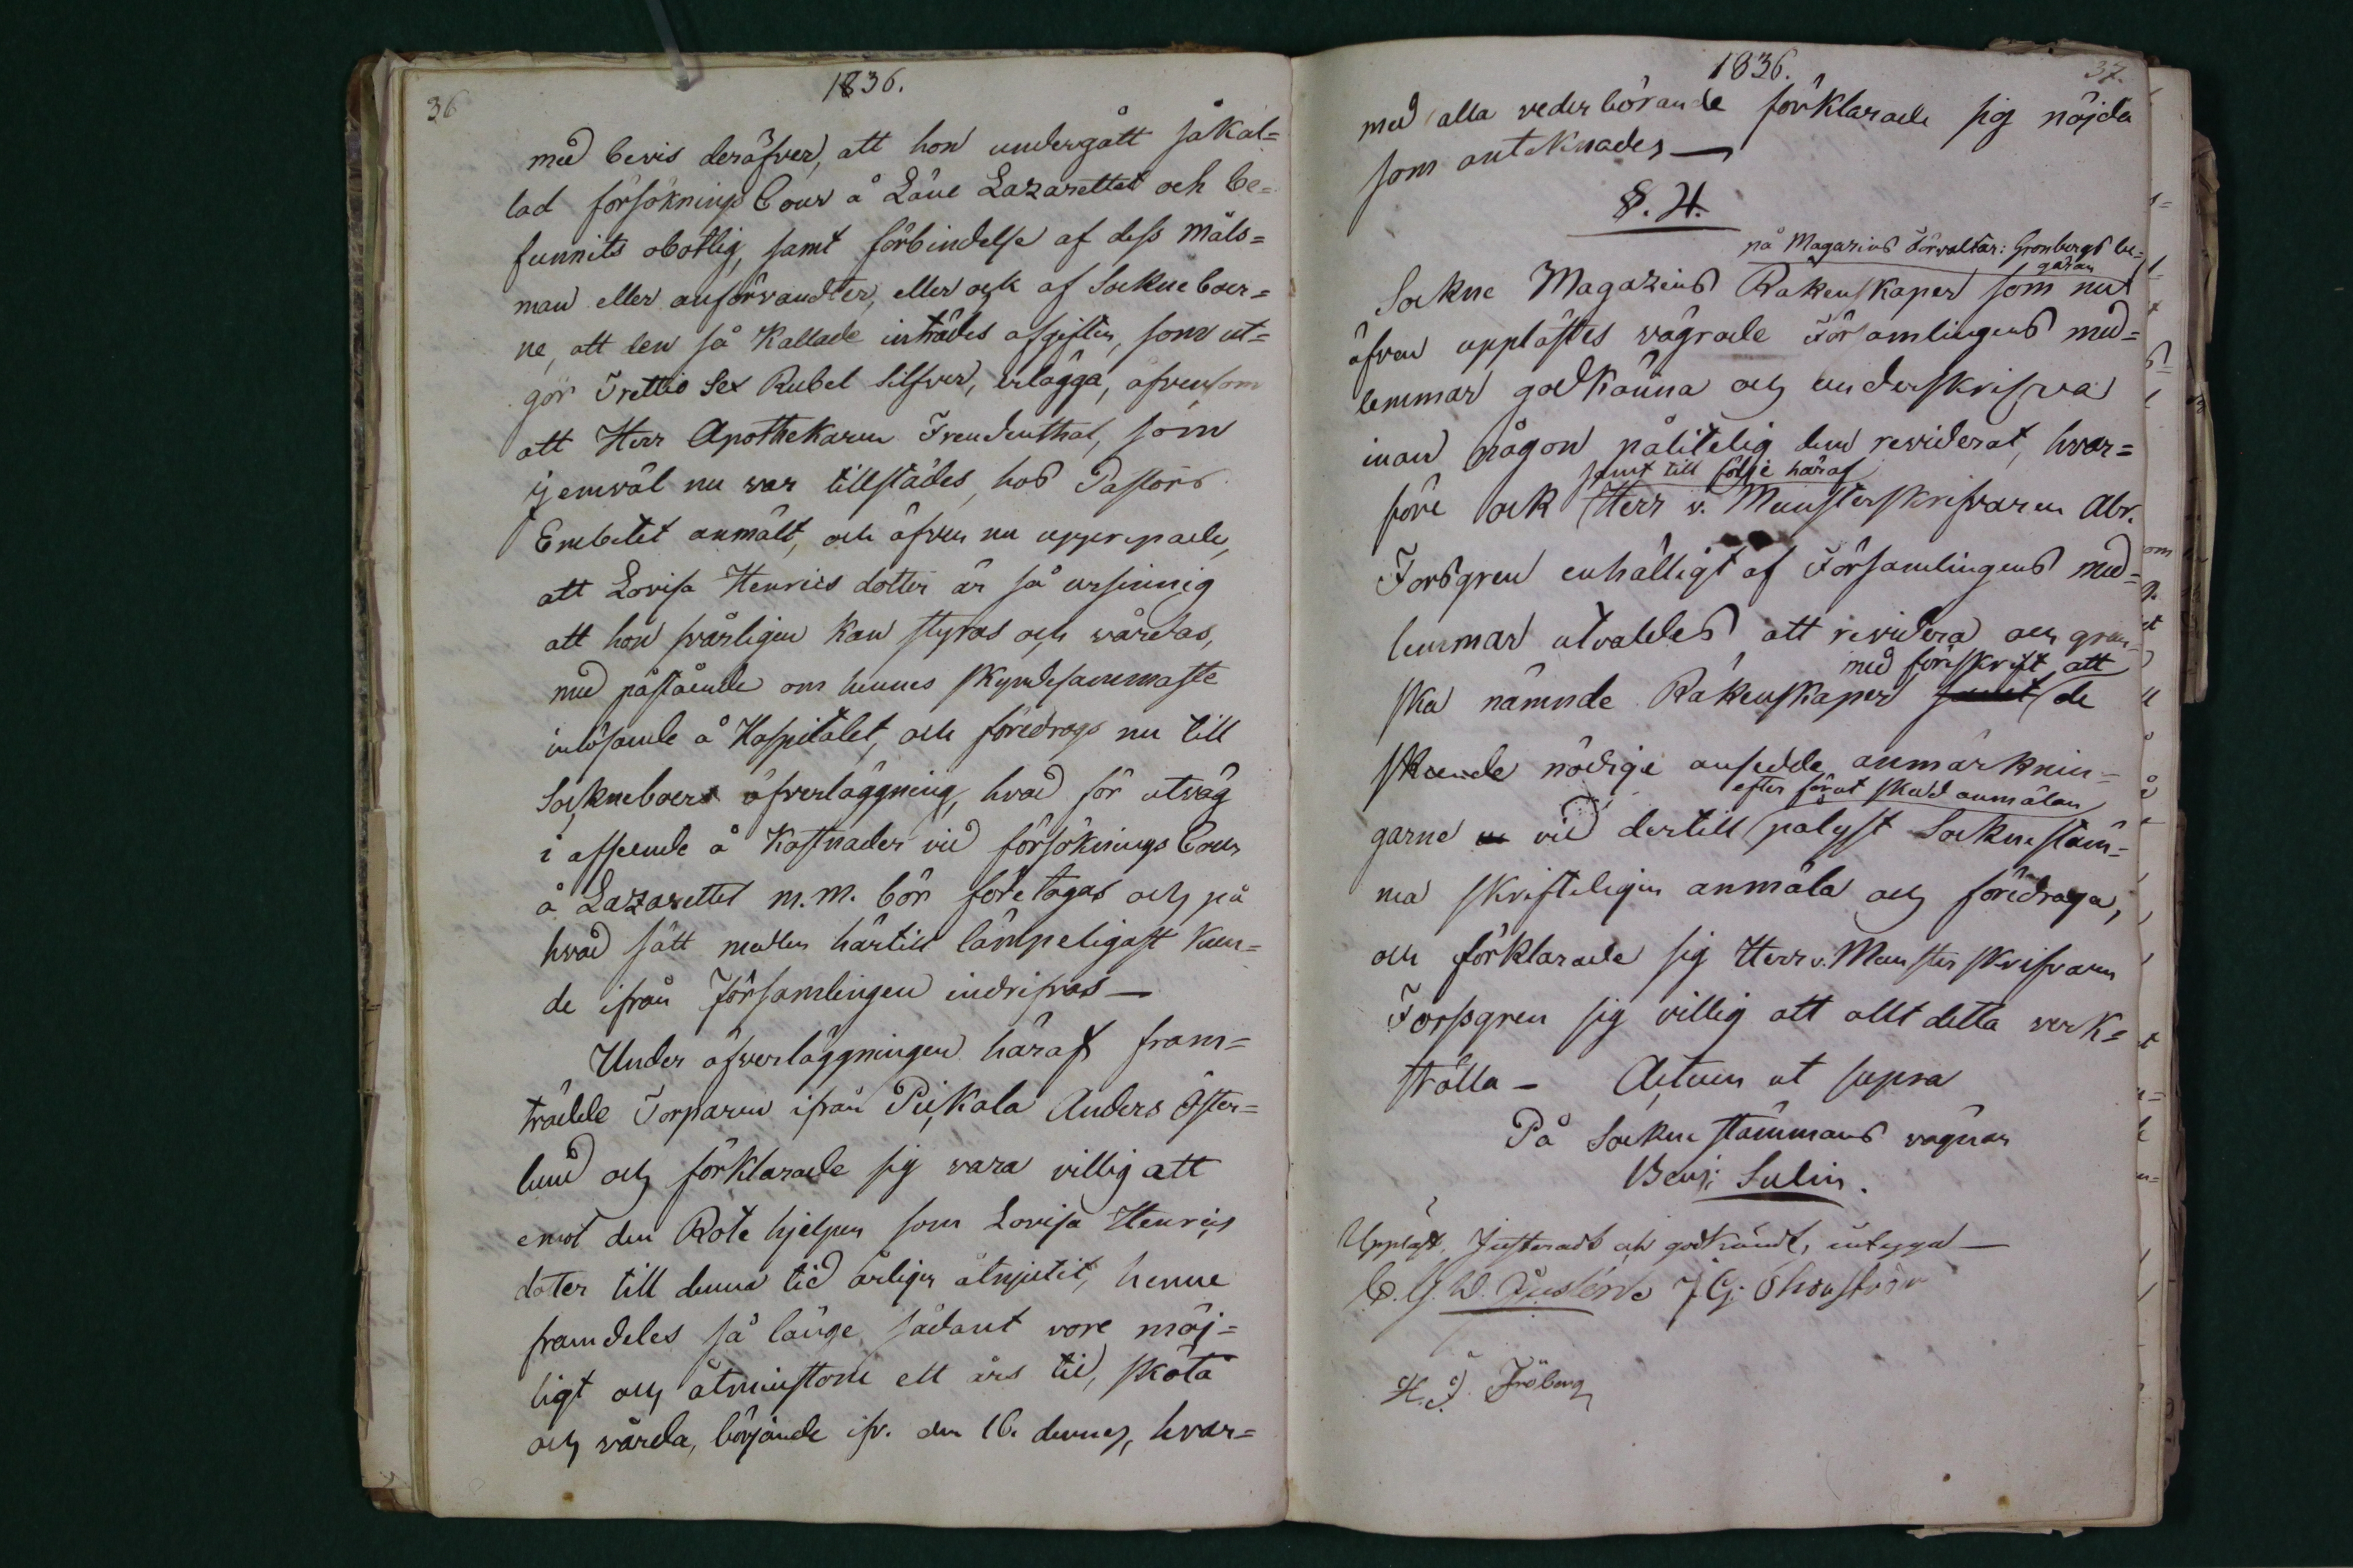 36
1836.
med bevis deröfver, att hon undergått såkal=
lad försöknings Cour å Läne Lazarettet och be=
funnits obotlig, samt förbindelse af dess Måls=
man eller anförvandter, eller ock af Sockneboer=
ne, att den så kallade inträdes afgiften, som ut=
gör Trettio Sex Rubel Silfver, erlägga, äfvensom
att Herr Apothekaren Freudenthal, som
jemväl nu var tillstädes, hos Pastors
Embetet anmält, och äfven nu upprepade,
att Lovisa Henrics dotter är så ursinnig
att hon svårligen kan styras och vårdas,
med påstående om hennes skyndesammaste
inlösande å Hospitalet, och föredrogs nu till
Sockneboers öfverläggning, hvad för utväg
i afseende å Kostnader vid försöknings Cour
å Lazarettet m.m. bör företagas och på
hvad sätt medlen härtill lämpeligast kun=
de ifrån Församlingen indrifvas —
Under öfverläggningen häraf fram=
trädde Torparen ifrån Piikala Anders Öster=
lund och förklarade sig vara villig att
emot den Rote hjelpen som Lovisa Henrics
doter till denna tid årligen åtnjutit, henne
framdeles så länge sådant vore möj=
ligt och åtminstone ett års tid, sköta
och vårda, börjande ifr. den 16. dennes, hvar=
1836.
37.
med alla vederbörande förklarade sig nöjda
som antecknades —
§. 4.
på Magazins Förvaltar: Gronbergs be=
gäran
Sockne Magazins Räkenskaper som nu
äfven upplästes vägrade Församlingens med=
lemmar godkänna och underskrifva
innan någon pålitelig dem reviderat, hvar=
samt till följe häraf
före ock Herr v. Munsterskrifvaren Abr.
Forsgren enhälligt af Församlingens med=
lemmar utvaldes att revidera och gran=
med föreskrift att
ska nämnde Räkenskaper samt de
skeende nödige ansedde anmärknin=
efter förut skedd anmälan
garne vid dertill pålyst Socknestäm=
ma skrifteligen anmäla och föredraga,
och förklarade sig Herr v. Munster skrifvaren
Forssgren sig villig att allt detta verk=
ställa — Actum ut supra
På Sockne stämmans vägnar
Benj: Sulin.
Uppläst, Justeradt och godkändt, intyga —
C. G. W. Gustérn J. G. Thonström
H. J. Fröberg